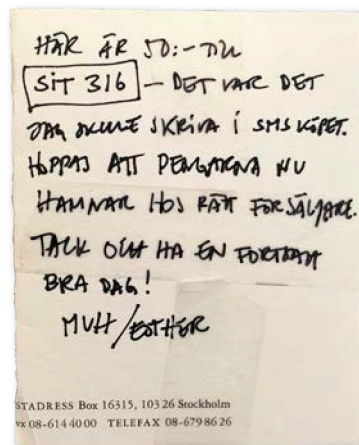 HÄR ÄR 50:- TILL
SIT 316 – DET VAR DET
JAG SKULLE SKRIVA I SMS KÖPET.
HOPPAS ATT PENGARNA NU
HAMNAR HOS RÄTT FÖRSÄLJARE.
TACK OCH HA EN FORTSATT
BRA DAG!
MVH/ESTHER
STADRESS Box 16315, 103 26 Stockholm
vx 08-614 40 00 TELEFAX 08-679 86 26